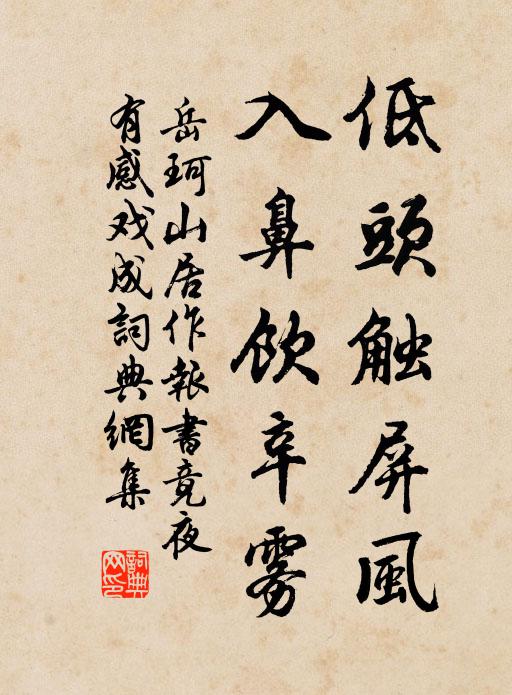 低頭触屏風
入鼻飲辛霧
岳珂山居作報書竟夜
有感戏成詞典網集
詞典
网印